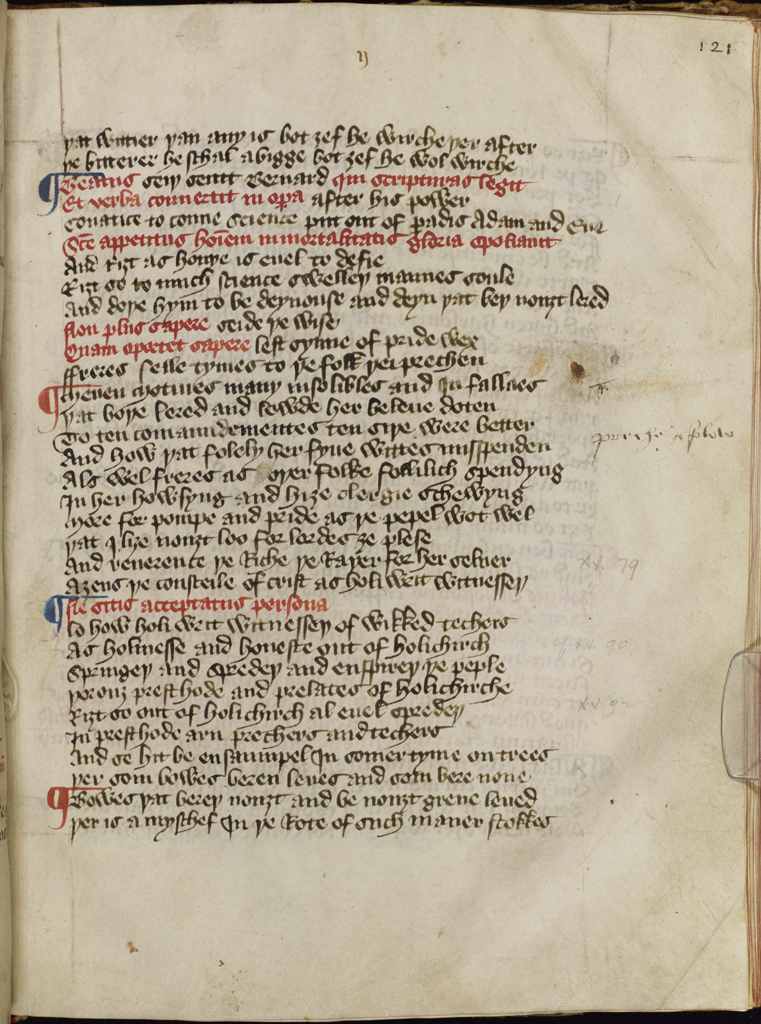 ij
121
þat wittier þan any is bot ȝef he wirche þer after
þe bitterer he schal abigge bot ȝef he wol wirche
Beatus seiþ seint Bernard qui scripturas legit
Et verba conuertit in opera after his power
Couatice to conne science put out of paradis Adam and Eue
Sciencie appetitus hominem inmortalitatis gloria spoliauit
And riȝt as honye is euel to defie
Riȝt so to much science swelleþ mannes soule
And doþe hym to be deynouse and deyn þat beþ nouȝt lered
Non plus sapere seide þe wise
Quam oportet sapere lest synne of pride wex
Freres feile tymes to þe folk þer þei prechen
Meuen motiues many insolibles and in fallaes
þat boþe lered and lewde her beleue doten
To ten comaundementes ten siþe were better
And how þat folely her fyue wittes misspenden
Als wel freres as oþer folke folilich spendyng
In her howsyng and hiȝe clergie schewyng
More for pompe and pride as þe pepel wot wel
þat I liȝe nouȝt loo for lordes ȝe plese
And reuerence þe riche þe raþer for her seluer
Aȝens þe conseile of crist as holi writ witnesseþ
Ne sitis acceptatus persona
lo how holi writ witnesseþ of wikked techers
As holinesse and honeste out of holichirch
Springeþ and spredeþ and enspireþ þe peple
þorouȝ presthode and prelates of holichirche
Riȝt so out of holichirch al euel spredeþ
In presthode arn prechers and techers
And se hit be ensaumpel In somer tyme on trees
þer som bowes beren leues and som bere none
Bowes þat bereþ nouȝt and be nouȝt grene leued
þer is a myschef In þe rote of such maner stokkes
xv. 79
xv. 90
xv. 9